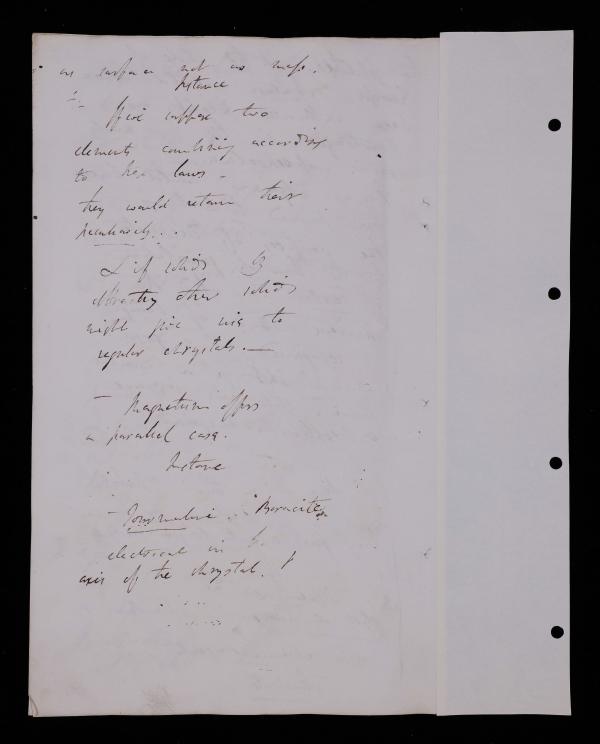 on surface not as mass.
Instance
– If we suppose two
elements combining according
to these laws –
they would retain their
peculiarity...
& if solids by
attracting other solids
might give rise to
regular chrystals. —
– Magnetism offers
a parallel case.
Instance
– Tourmaline .. Boracite
electrical in the
axis of the chrystal.